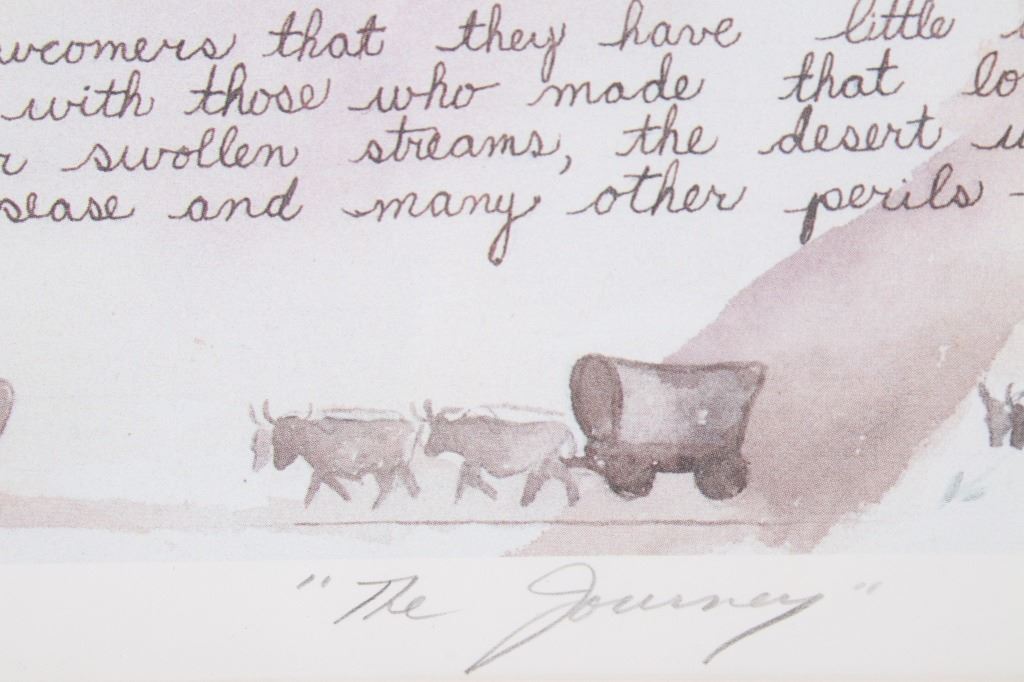 wcomers that they have little
with those who made that lo
r swollen streams, the desert w
sease and many other perils -
"The Journey"